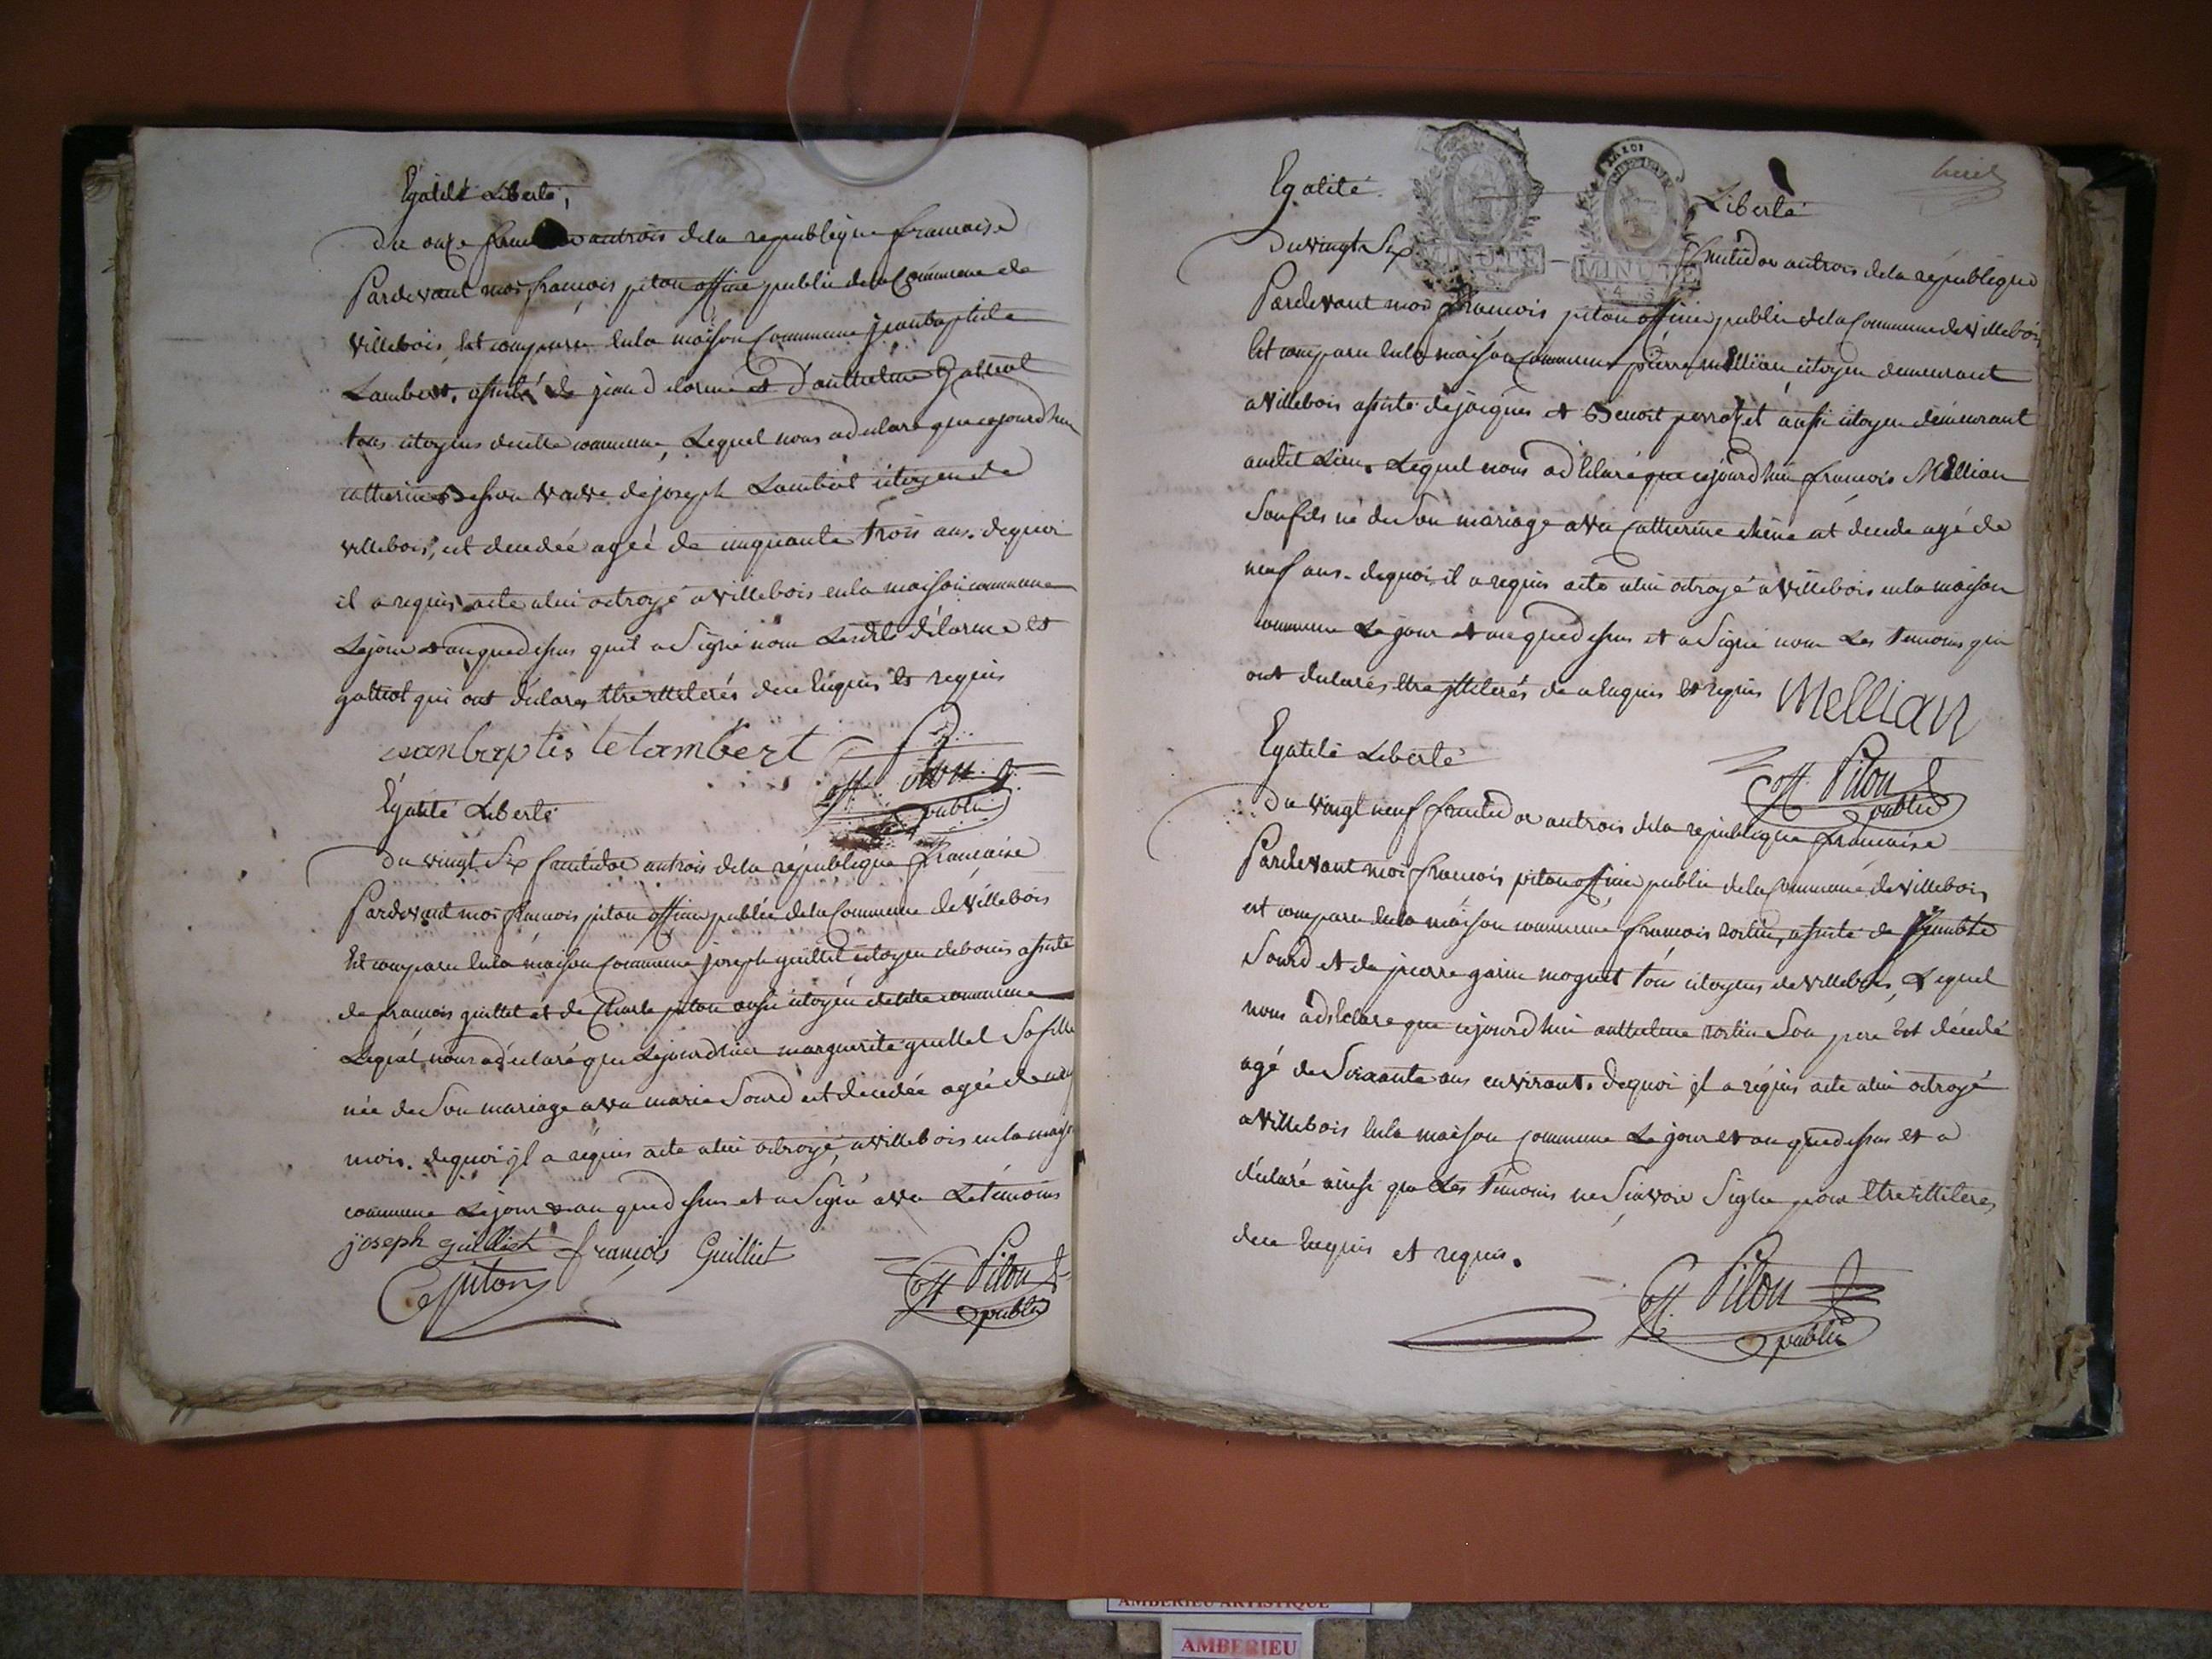 Egalité Liberté,
Du onze an trois dela republique francaise
Pardevant moi francois piton officie public dela Commune de
villebois, Est comparu enla maison Commune jeanbaptiste
Lambert, assisté de jean delorme et d'anthelme Galliot
tous citoyens decette commune, Lequel nous adeclaré que cejourdhui
catherine veuve de joseph Lambert citoyen de
villebois, est decedée agée de cinquante trois ans. dequoi
il a requis acte alui octroyé a villebois enla maison commune
Lejour et an quedessus quil a signé non Lesdits delorme et
galliot qui ont déclarés Etre illiterés de ce Enquis et requis
jeanbaptis te lambert
off. piton
public
Egalité Liberté
Du vingt Six fructidor an trois dela république francaise
Pardevant moi francois piton officie public dela Commune de villebois
Est comparu enla maison Commune joseph guillet citoyen debouis assisté
de francois guillet et de Charle piton aussi citoyen decette commune
Lequel nous adéclaré que cejourdhui marguerite guillet Sa fille
née de Son mariage avec marie Sourd est decedée agée de
mois. dequoi jl a requis acte alui octroyé, a villebois en la maison
commune Lejour et an quedessus et a Signé avec Les temoins
joseph guilliet francois Guilliet
C piton
off. Piton
public
Egalité. Liberté
MINUTE MINUTE
Du vingt Six fructidor an trois dela république
Pardevant moi francois piton officie public dela Commune de villebois
Est comparu enla maison commune pierre mellian citoyen demeurant
a villebois assisté de jacques et Benoit perrozet aussi citoyen demeurant
audit Lieu. Lequel nous adéclaré que cejourdhui francois Mellian
Son fils né de Son mariage avec catherine chêne est decede agé de
neuf ans. dequoi il a requis acte alui octroyé a villebois enla maison
commune Le jour et an quedessus et a Signé non Les temoins qui
ont declarés Etre jlliterés de ce Enquis et requis Mellian
Egalité Liberté
off. Piton
public
Du vingt neuf fructidor an trois dela republique francaise
Pardevant moi francois piton officie public dela Commune de villebois
est comparu enla maison commune francois rostin, assisté de
Sourd et de pierre garin moguet tous citoyens de villebois, Lequel
nous adeclaré que cejourdhui anthelme rostin Son pere Est décédé
agé de Soixante ans environt. dequoi jl a réquis acte alui octroyé
a villebois Enla maison commune Le jour et an quedessus et a
déclaré ainsi que Les témoins ne Scavoir Signer pour Etre illiteres
de ce Enquis et requis.
off. Piton
public
AMBERIEU ARTISTIQUE
AMBERIEU